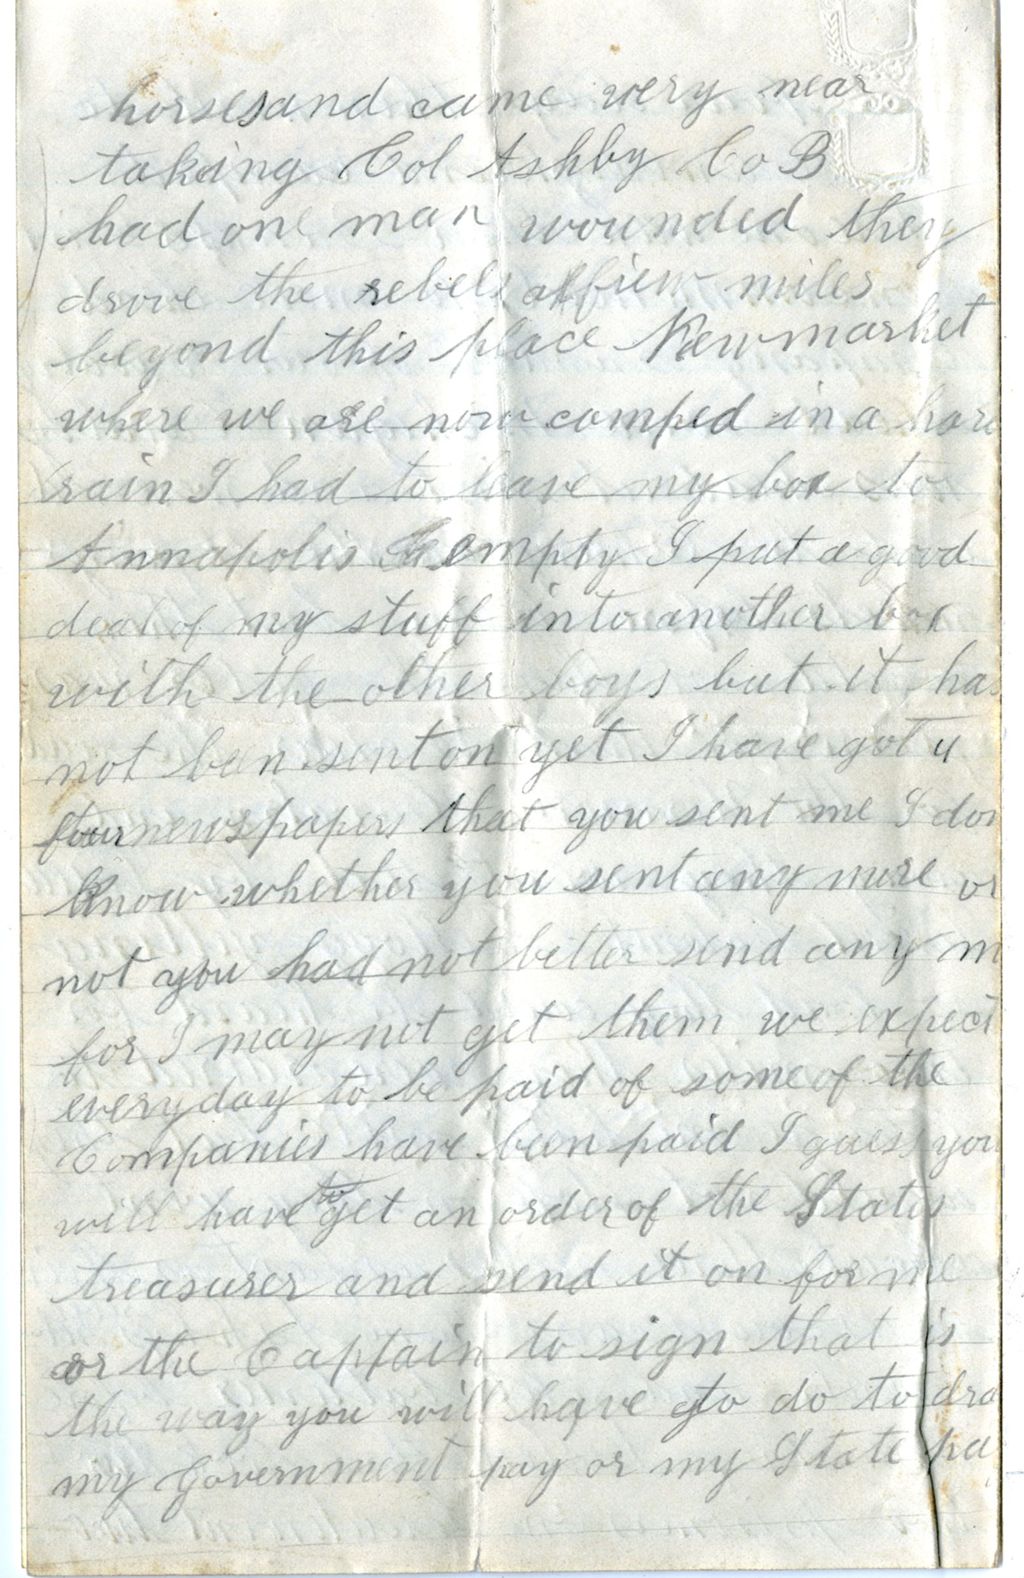 horses and came very near
taking Col Ashby Co B
had one man wounded they
drove the rebels a fiew miles
beyond this place Newmarket
where we are now camped in a hard
rain I had to leave my box to
Annapolis empty I put a good
deal of my stuff into another box
with the other boys but it has
not been sent on yet I have got
four newspapers that you sent me I don
know whether you sent any more or
not you had not better send any m
for I may not get them we expect
everyday to be paid of some of the
Companies have been paid I guess you
will have to get an order of the States
treasurer and send it on for me
or the Captain to sign that is
the way you will have to do to dra
my Government pay or my State pa